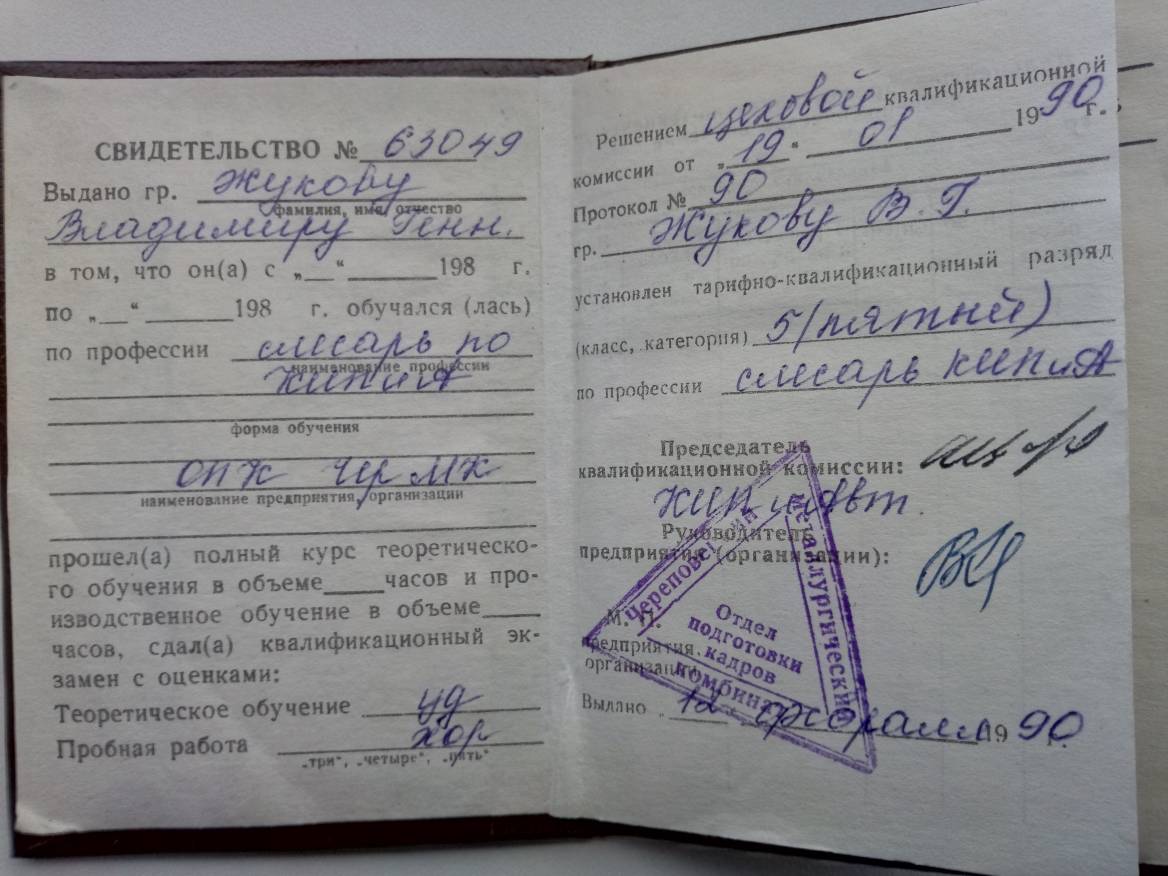 СВИДЕТЕЛЬСТВО № 63049
Выдано гр. Жукову
фамилия, имя, отчество
Владимиру Генн.
в том, что он(а) с „__“ ______198 г.
по „__“ ______198 г. обучался (лась)
по профессии слесарь по
наименование профессии
КИПиА
форма обучения
ОПК ЧрМК
наименование предприятия, организации
прошел(а) полный курс теоретическо-
го обучения в объеме____часов и про-
изводственное обучение в объеме____
часов, сдал(а) квалификационный эк-
замен с оценками:
Теоретическое обучение уд
Пробная работа хор
„три“, „четыре“, „пять“
Решением цеховой квалификационной
комиссии от „19“ 01 1990 г.
Протокол № 90
гр. Жукову В. Г.
установлен тарифно-квалификационный разряд
(класс, категория) 5 (пятый)
по профессии слесарь КИПиА
Председатель
квалификационной комиссии:
КИПиАвт.
Руководитель
предприятия (организации):
М. П.
предприятия,
организации
Выдано „12 февраля 1990 г.
Череповецкий
металлургический
комбинат
Отдел
подготовки
кадров